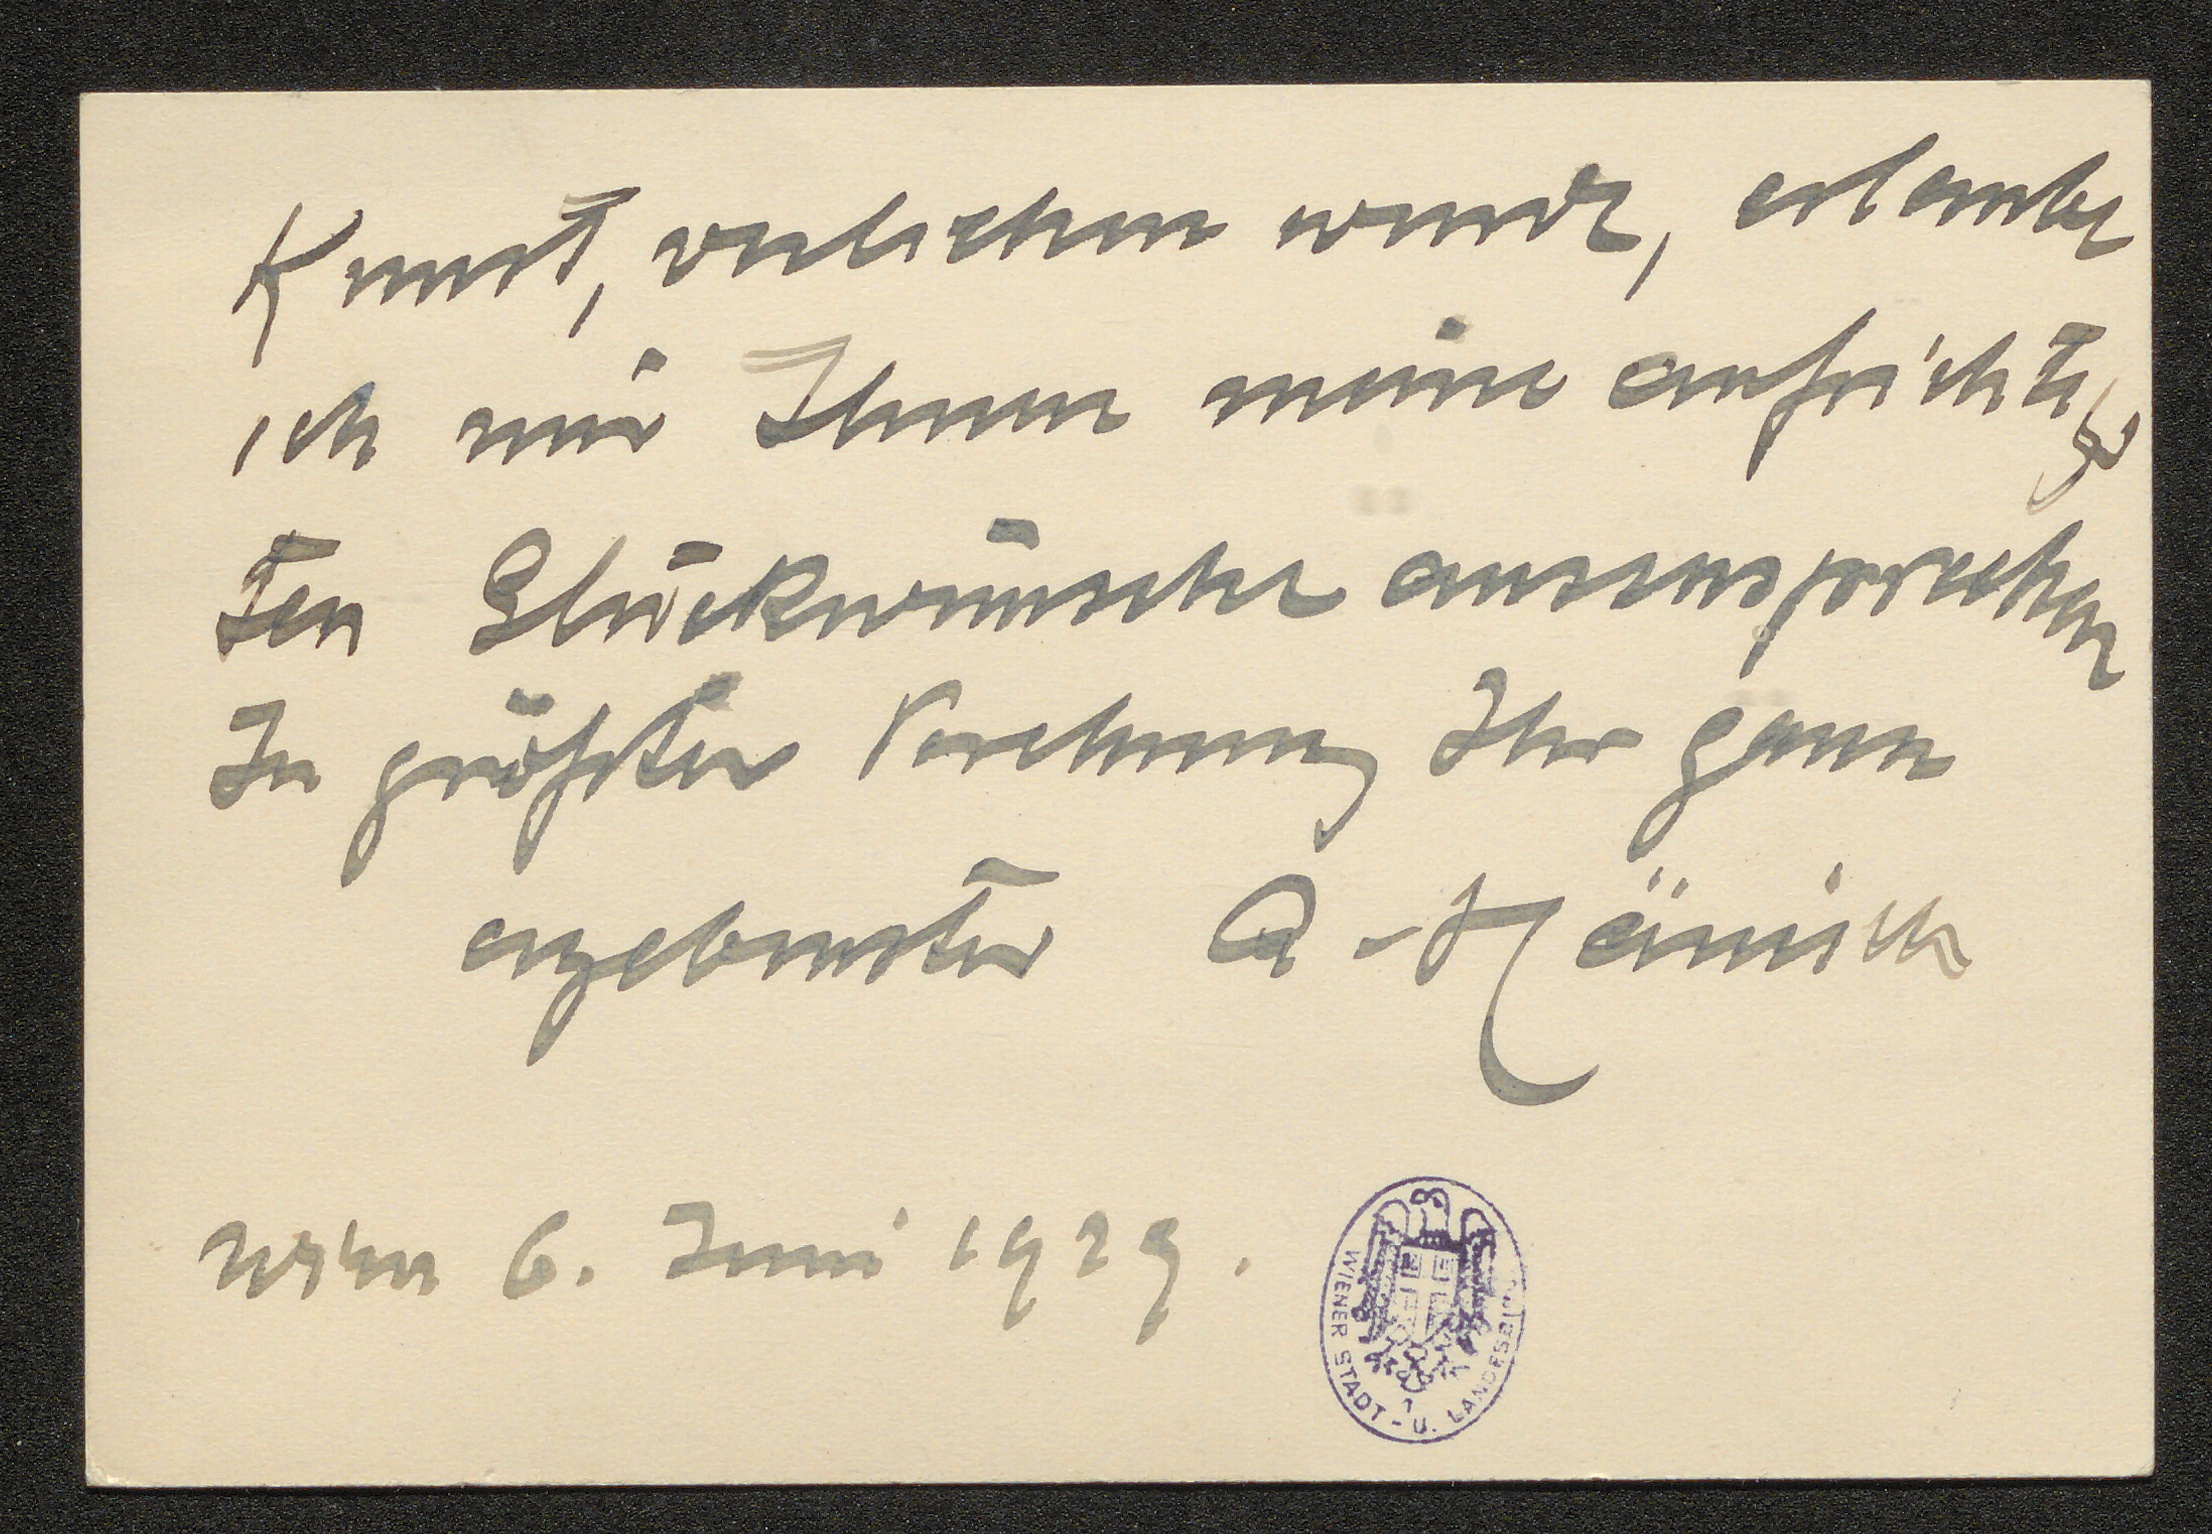 Kunst, verliehen wurde, erlaube
ich mir Ihnen meine aufrichtig
sten Glückwünsche auszusprechen
In größter Verehrung Ihr ganz
ergebenster A. Hänisch
Wien 6. Juni 1929.
WIENER STADT - U. LANDESBIBL.